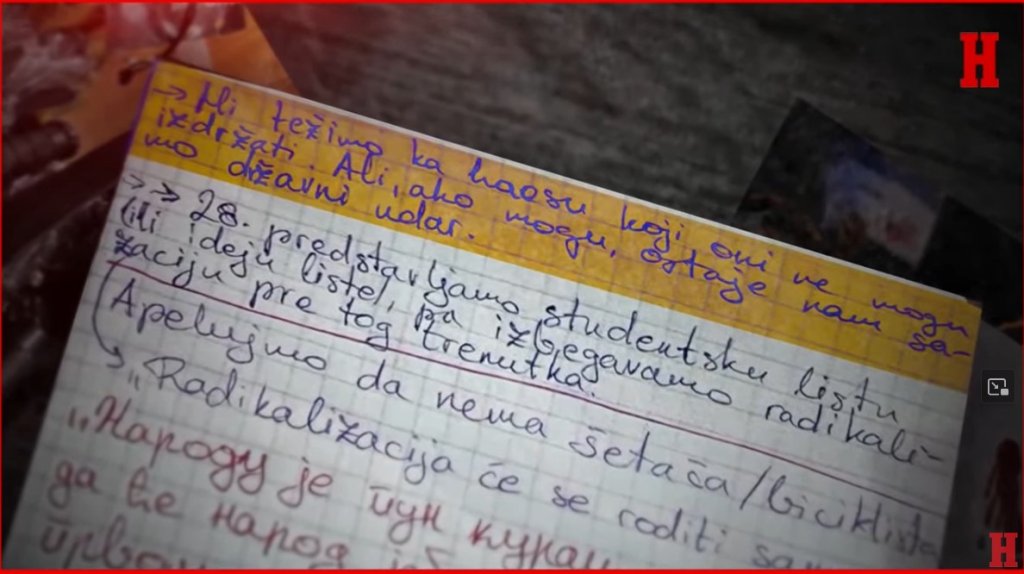 H
→ Mi težimo ka haosu koji oni ne mogu
izdržati. Ali, ako mogu, ostaje nam sa-
mo državni udar.
>→ 28. predstavljamo studentsku listu
(ili ideju liste), pa izbegavamo radikali-
zaciju pre tog trenutka.
Apelujmo da nema šetača/biciklista
„Radikalizacija će se roditi
„Народу је пун курац
да ће народ
H